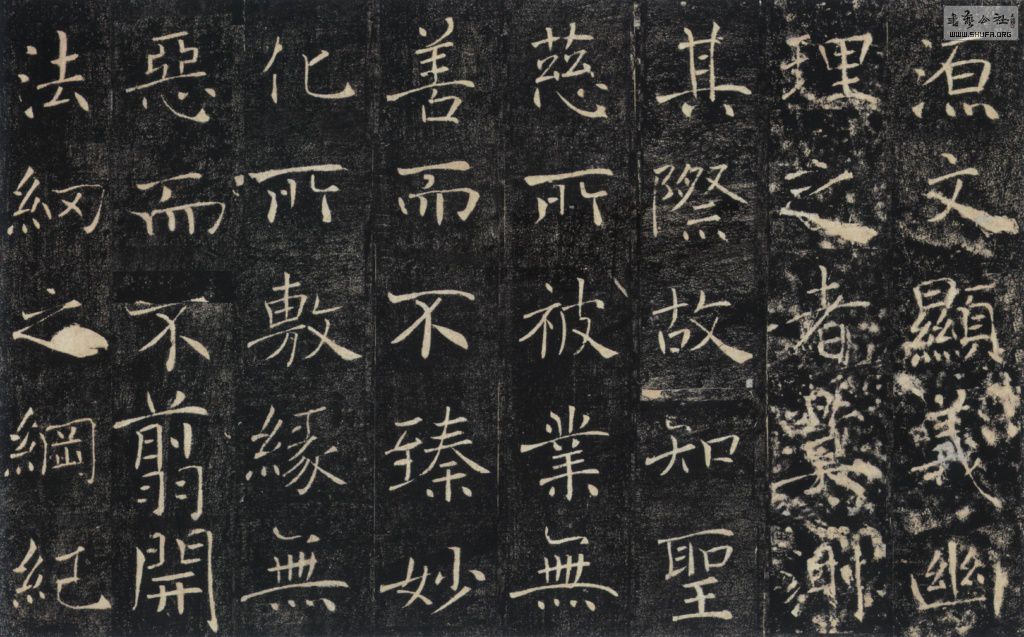 源文顯義幽
理之者莫測
其際故知聖
慈所被業無
善而不臻妙
化所敷緣無
惡而不翦開
法網之綱紀
書藝公社
WWW.SHUFA.ORG